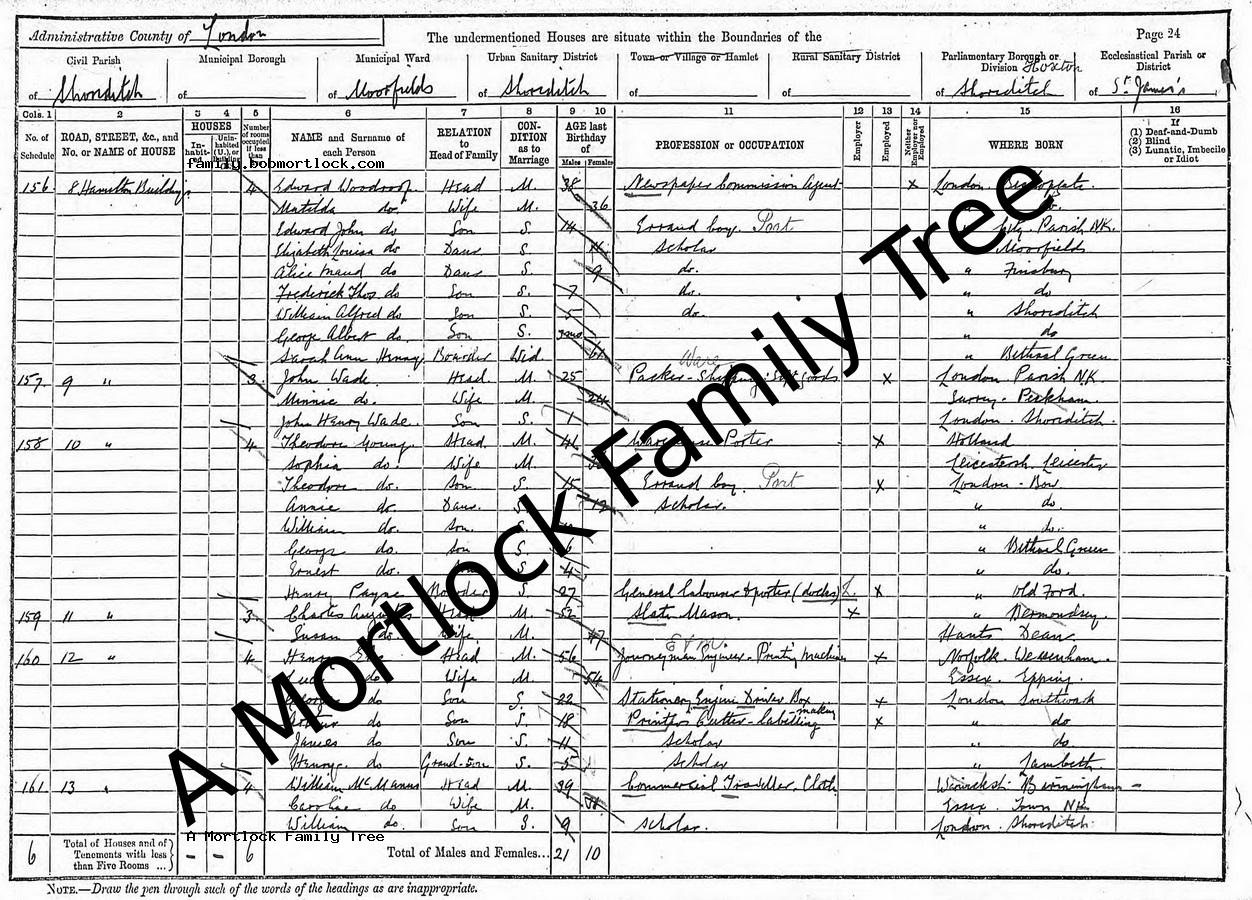 Administrative County of London
The undermentioned Houses are situate within the Boundaries of the
Page 24
Civil Parish of Shoreditch
Municipal Borough of
Municipal Ward of Moorfields
Urban Sanitary District of Shoreditch
Town or Village or Hamlet of
Rural Sanitary District of
Parliamentary Borough or Division of Shoreditch Hoxton
Ecclesiastical Parish or District of St. James's
Cols. 1 2 3 4 5 6 7 8 9 10 11 12 13 14 15 16
No. of Schedule
ROAD, STREET, &c., and No. or NAME of HOUSE
HOUSES
In-habit-ed
Unin-habited (U.), or Building
Number of rooms occupied if less than five
NAME and Surname of each Person
RELATION to Head of Family
CON-DITION as to Marriage
AGE last Birthday of
Males Females
PROFESSION or OCCUPATION
Employer
Employed
Neither Employer nor Employed
WHERE BORN
If (1) Deaf-and-Dumb (2) Blind (3) Lunatic, Imbecile or Idiot
family.bobmortlock.com
156 8 Hamilton Buildings 4 Edward Woodroof Head M. 38 Newspaper Commission Agent x London. Bishopsgate.
Matilda do. Wife M. 36 do.
Edward John do Son S. 14 Errand boy. Port " City. Parish N.K.
Elizabeth Louisa do Daur S. 11 Scholar " Moorfields
Alice Maud do Daur S. 9 do. " Finsbury
Frederick Thos do Son S. 7 do. " do
William Alfred do Son S. 5 do. " Shoreditch
George Albert do. Son S. 3mo " do
Sarah Ann Boarder Wid. 61 " Bethnal Green
157 9 " 3 John Wade Head. M. 25 Packer - Shipping: Soft Goods Ware x London. Parish N.K.
Minnie do. Wife M. 24 Surrey. Peckham.
John Henry Wade. Son S. 1 London. Shoreditch.
158 10 " 4 Theodore Young Head M. Warehouse Porter x Holland
Sophia do. Wife M. Leicestersh. Leicester
Theodore do. Son S. 15 Errand boy. Port x London - Bow.
Annie do. Daur. S. 12 Scholar. " do.
William do. Son. S. " do.
George do. Son S. 6 " Bethnal Green
Ernest do. Son S. 4 " do.
Henry Payne Boarder S. 27 General Labourer & porter (docks) L. x " Old Ford.
159 11 " 3 Charles Head M. 52 Slate Mason. x " Bermondsey.
Susan do Wife M. 47 Hants Dean
160 12 " 4 Henry Head M. 56 Journeyman Engineer - Printing Machine x Norfolk. Weasenham.
do Wife M. 54 Essex. Epping.
George do Son S. 22 Stationery Engine Driver Box making x London Southwark
Arthur do Son S. 18 Printers Cutter - labelling x " do
James do Son S. 11 Scholar " do
Henry. do Grand-Son S. 5 Scholar " Lambeth
161 13 " 4 William McManus Head M. 39 Commercial Traveller. Cloth Warwicksh. Birmingham
Caroline do Wife M. Essex. Town N.K.
William do. Son S. 9 Scholar. London. Shoreditch.
A Mortlock Family Tree
A Mortlock Family Tree
6 Total of Houses and of Tenements with less than Five Rooms ... – – 6 Total of Males and Females... 21 10
NOTE.—Draw the pen through such of the words of the headings as are inappropriate.